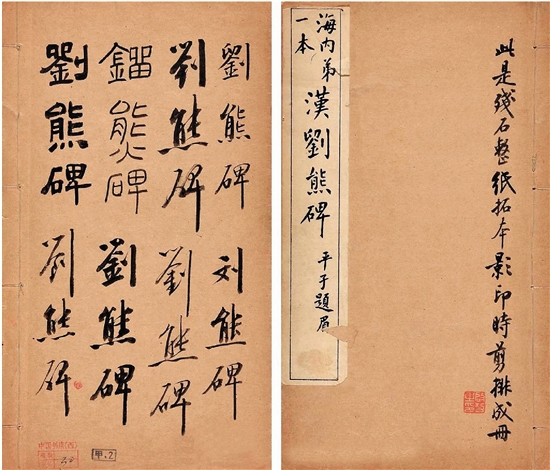 劉熊碑
刘熊碑
刘熊碑
劉熊碑
鐂熊碑
劉熊碑
劉熊碑
劉熊碑
中国书店(西)
甲.2
此是殘石整紙拓本影印時剪排成冊
海内弟一本
漢劉熊碑
平子題眉